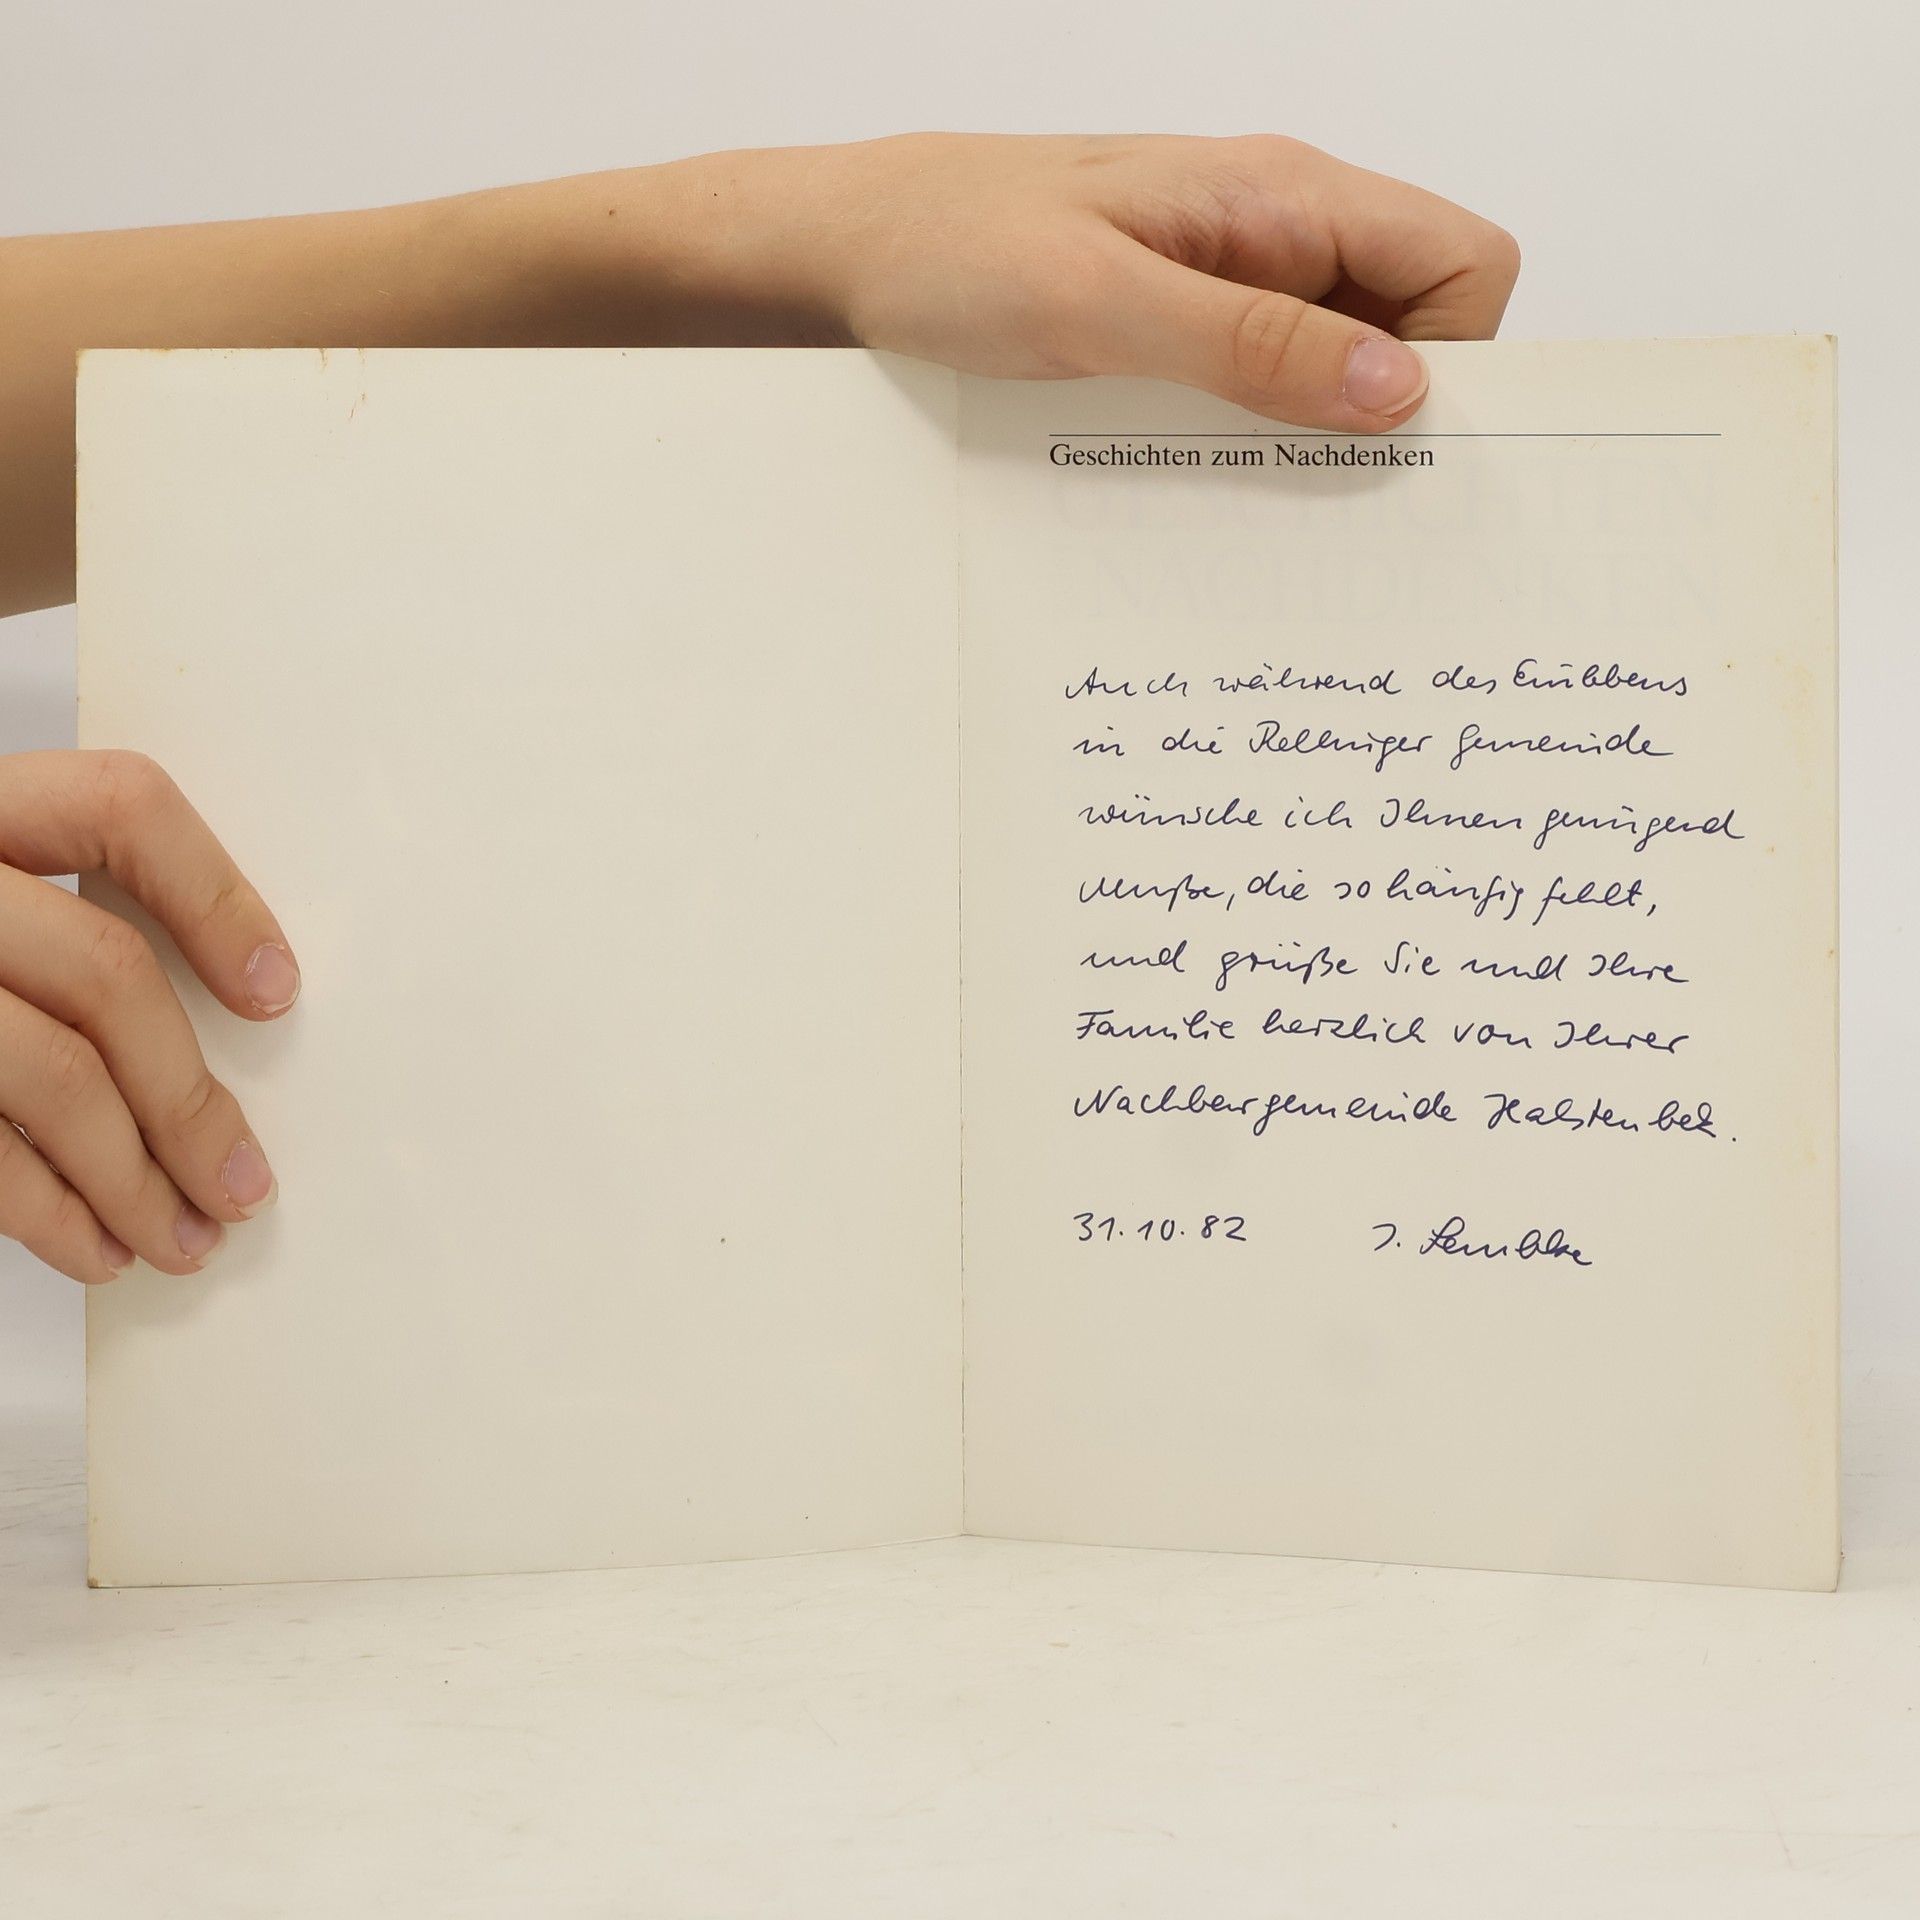 Geschichten zum Nachdenken
Auch während des Einlebens
in die Rellinger Gemeinde
wünsche ich Ihnen genügend
Muße, die so häufig fehlt,
und grüße Sie und Ihre
Familie herzlich von Ihrer
Nachbargemeinde Halstenbek.
31.10.82 J. Lembke